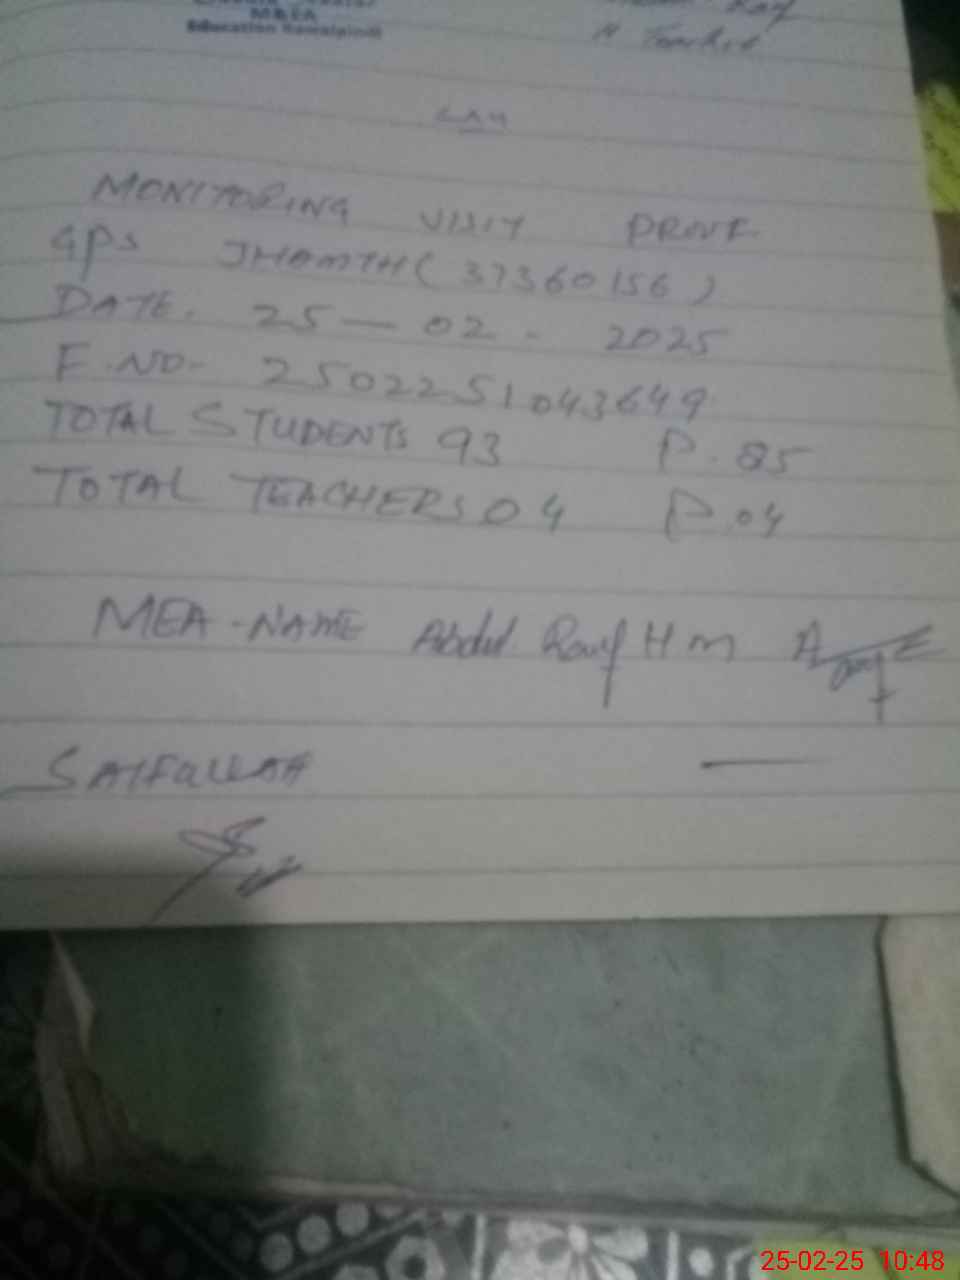 M&EA
Education Rawalpindi
MONITORING VISIT PROVF
GPS JHAMTH (37360156)
DATE. 25 — 02 - 2025
F.NO- 2502251043649
TOTAL STUDENTS 93 P. 85
TOTAL TEACHERS 04 P. 04
MEA-NAME Abdul Rauf H m
SAIFULLAH
25-02-25 10:48